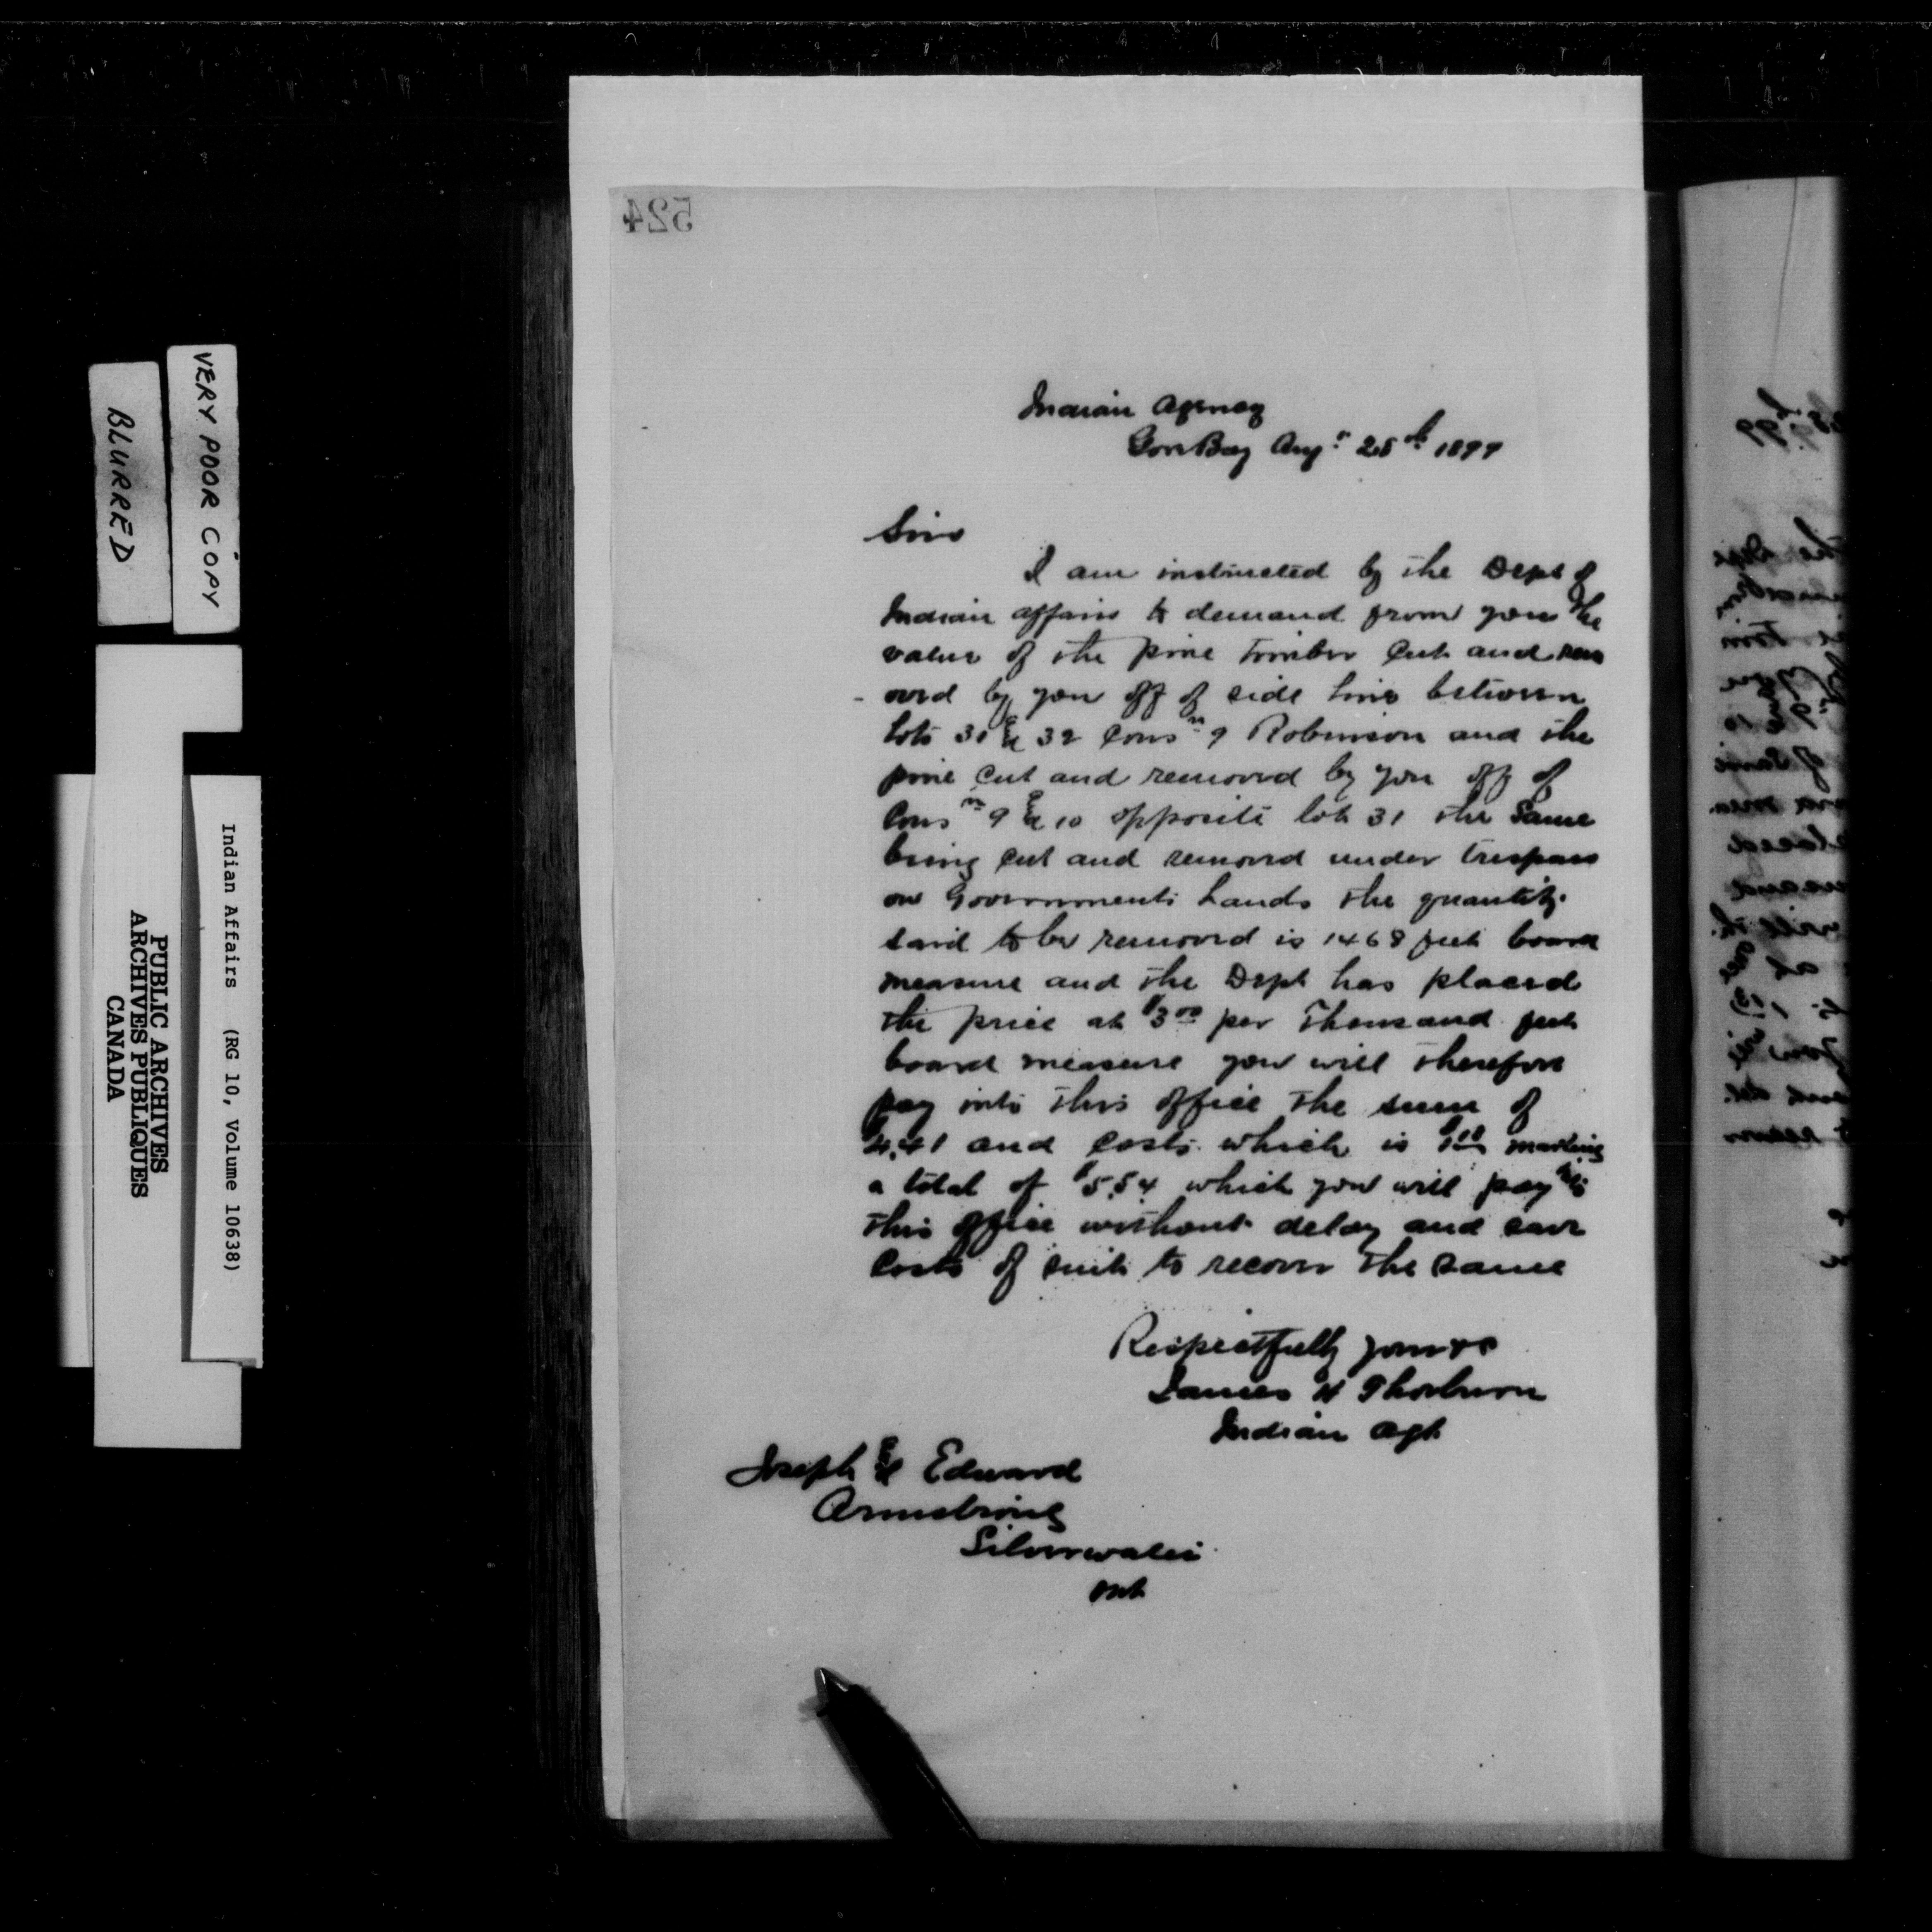 524
Indian Agency
Gore Bay Augt 25th 1899
Sirs
I am instructed by the Dept of
Indian affairs to demand from you the
value of the pine timber Cut and rem
- oved by you off of side line between
Lots 31 & 32 Consn 9 Robinson and the
pine Cut and removed by you off of
Consn 9 & 10 opposite lot 31 the Same
being Cut and removed under trespass
on Governments Lands the quantity
said to be removed is 1468 feet board
measure and the Dept has placed
the price at $3.00 per Thousand feet
board measure you will therefore
pay into this office the sum of
$4.41 and Costs which is making
a total of $5.54 which you will pay to
this office without delay and save
Costs of suit to recover the same
Respectfully yours
James H Thorburn
Indian Agt
Joseph & Edward
Armstrong
Silverwater
Ont
VERY POOR COPY
BLURRED
Indian Affairs (RG 10, Volume 10638)
PUBLIC ARCHIVES
ARCHIVES PUBLIQUES
CANADA